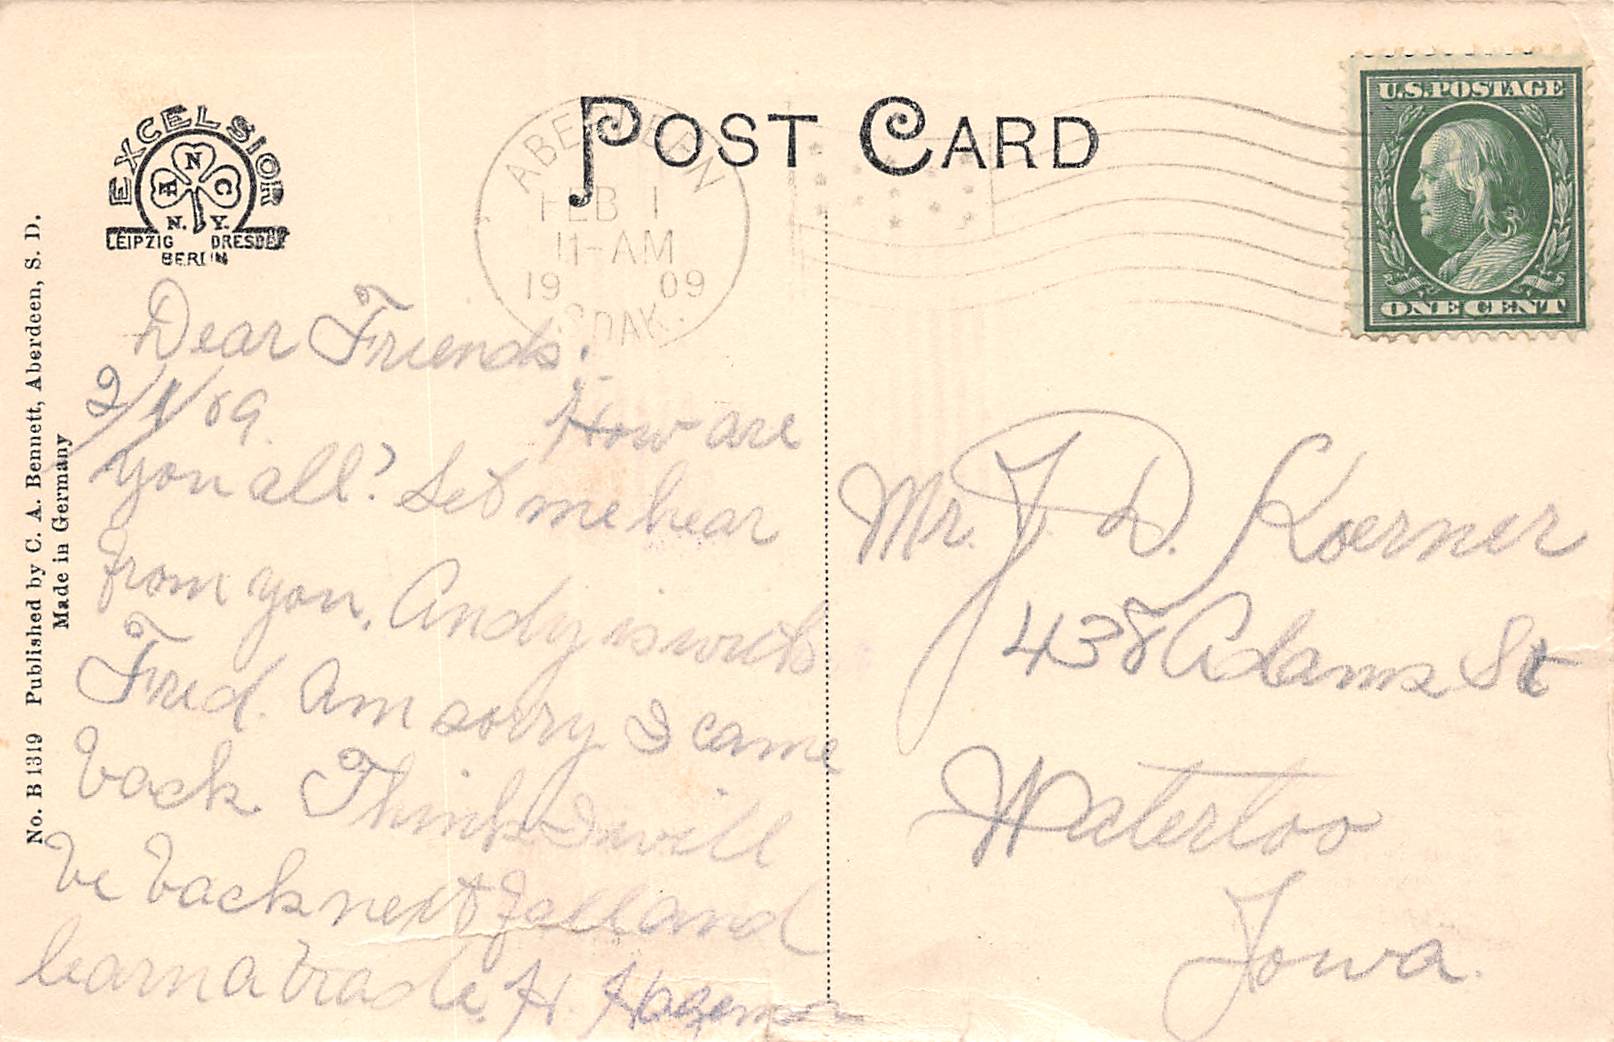 POST CARD
EXCELSIOR
N
A C
N. Y.
LEIPZIG DRESDEN
BERLIN
ABERDEEN
FEB 1
11-AM
1909
S.DAK.
U.S. POSTAGE
ONE CENT
No. B 1319 Published by C. A. Bennett, Aberdeen, S. D.
Made in Germany
Dear Friends:
2/1/09. How are
you all? Let me hear
from you. Andy is with
Fred. Am sorry I came
back Think I will
be back next fall and
learn a trade. H. Hagemon
Mr. J. D. Koerner
438 Adams St
Waterloo
Iowa.